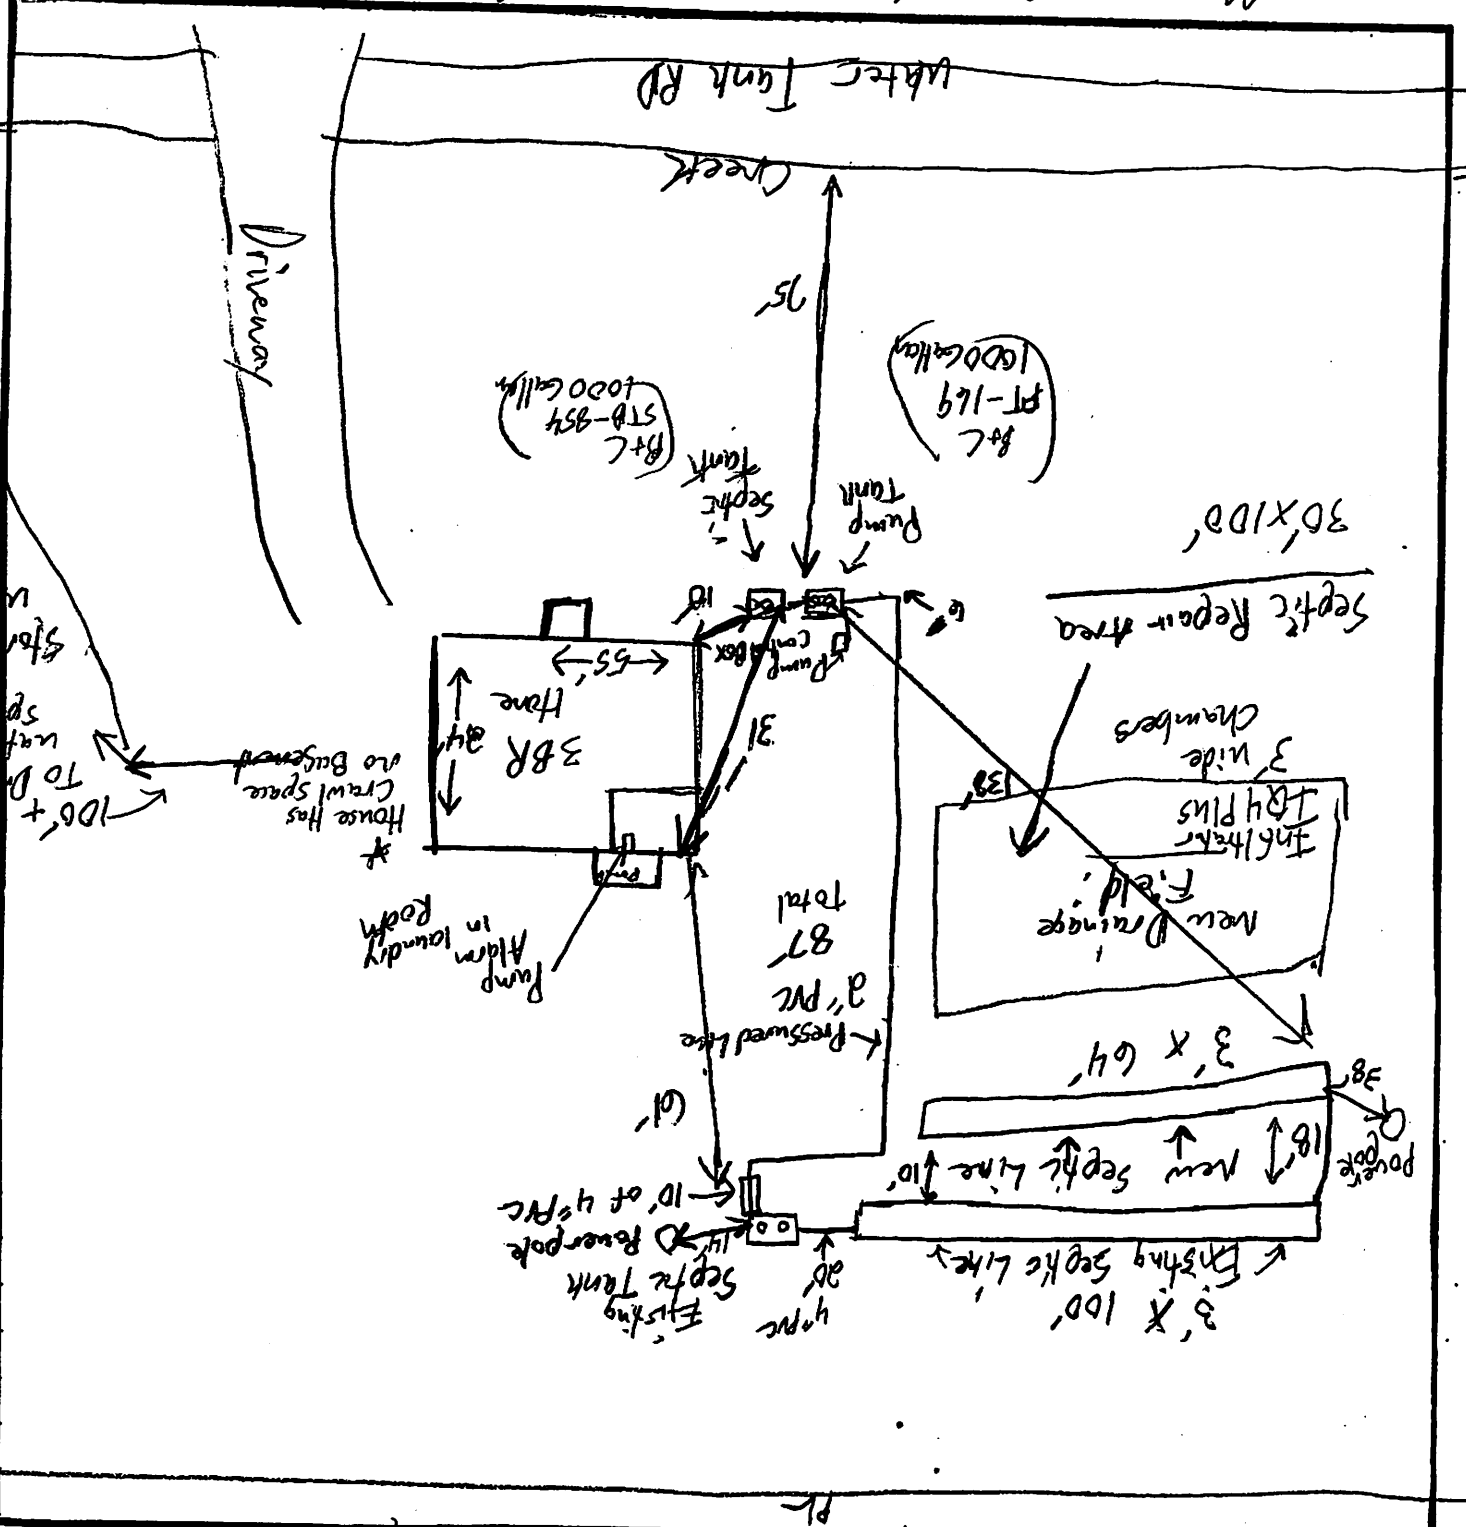 PL
3' X 100'
Existing Septic Line
4" PVC
20'
Existing
Septic Tank
14'
Powerpole
10' of 4" PVC
10'
New Septic Line
18'
Power
pole
38'
3' X 64'
61'
Pressured Line
2" PVC
87'
Total
New Drainage
Field
Infiltrator
IQ4 Plus
3' wide
Chambers
138'
Septic Repair Area
30' X 100'
Pump
Alarm
in laundry
Room
*
House Has
Crawl Space
no Basement
100' +
To
3 BR
Home
24'
55'
31'
10'
Pump
Control Box
6'
Pump
Tank
Septic
Tank
B+C
PT-169
1000 Gallon
B+C
STB-854
1000 Gallon
75'
Driveway
Creek
Water Tank RD